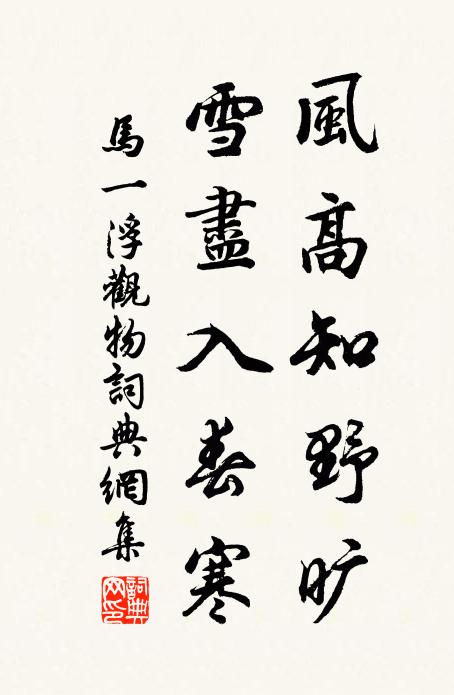 風高知野旷
雪盡入春寒
馬一浮觀物詞典網集
詞典网印